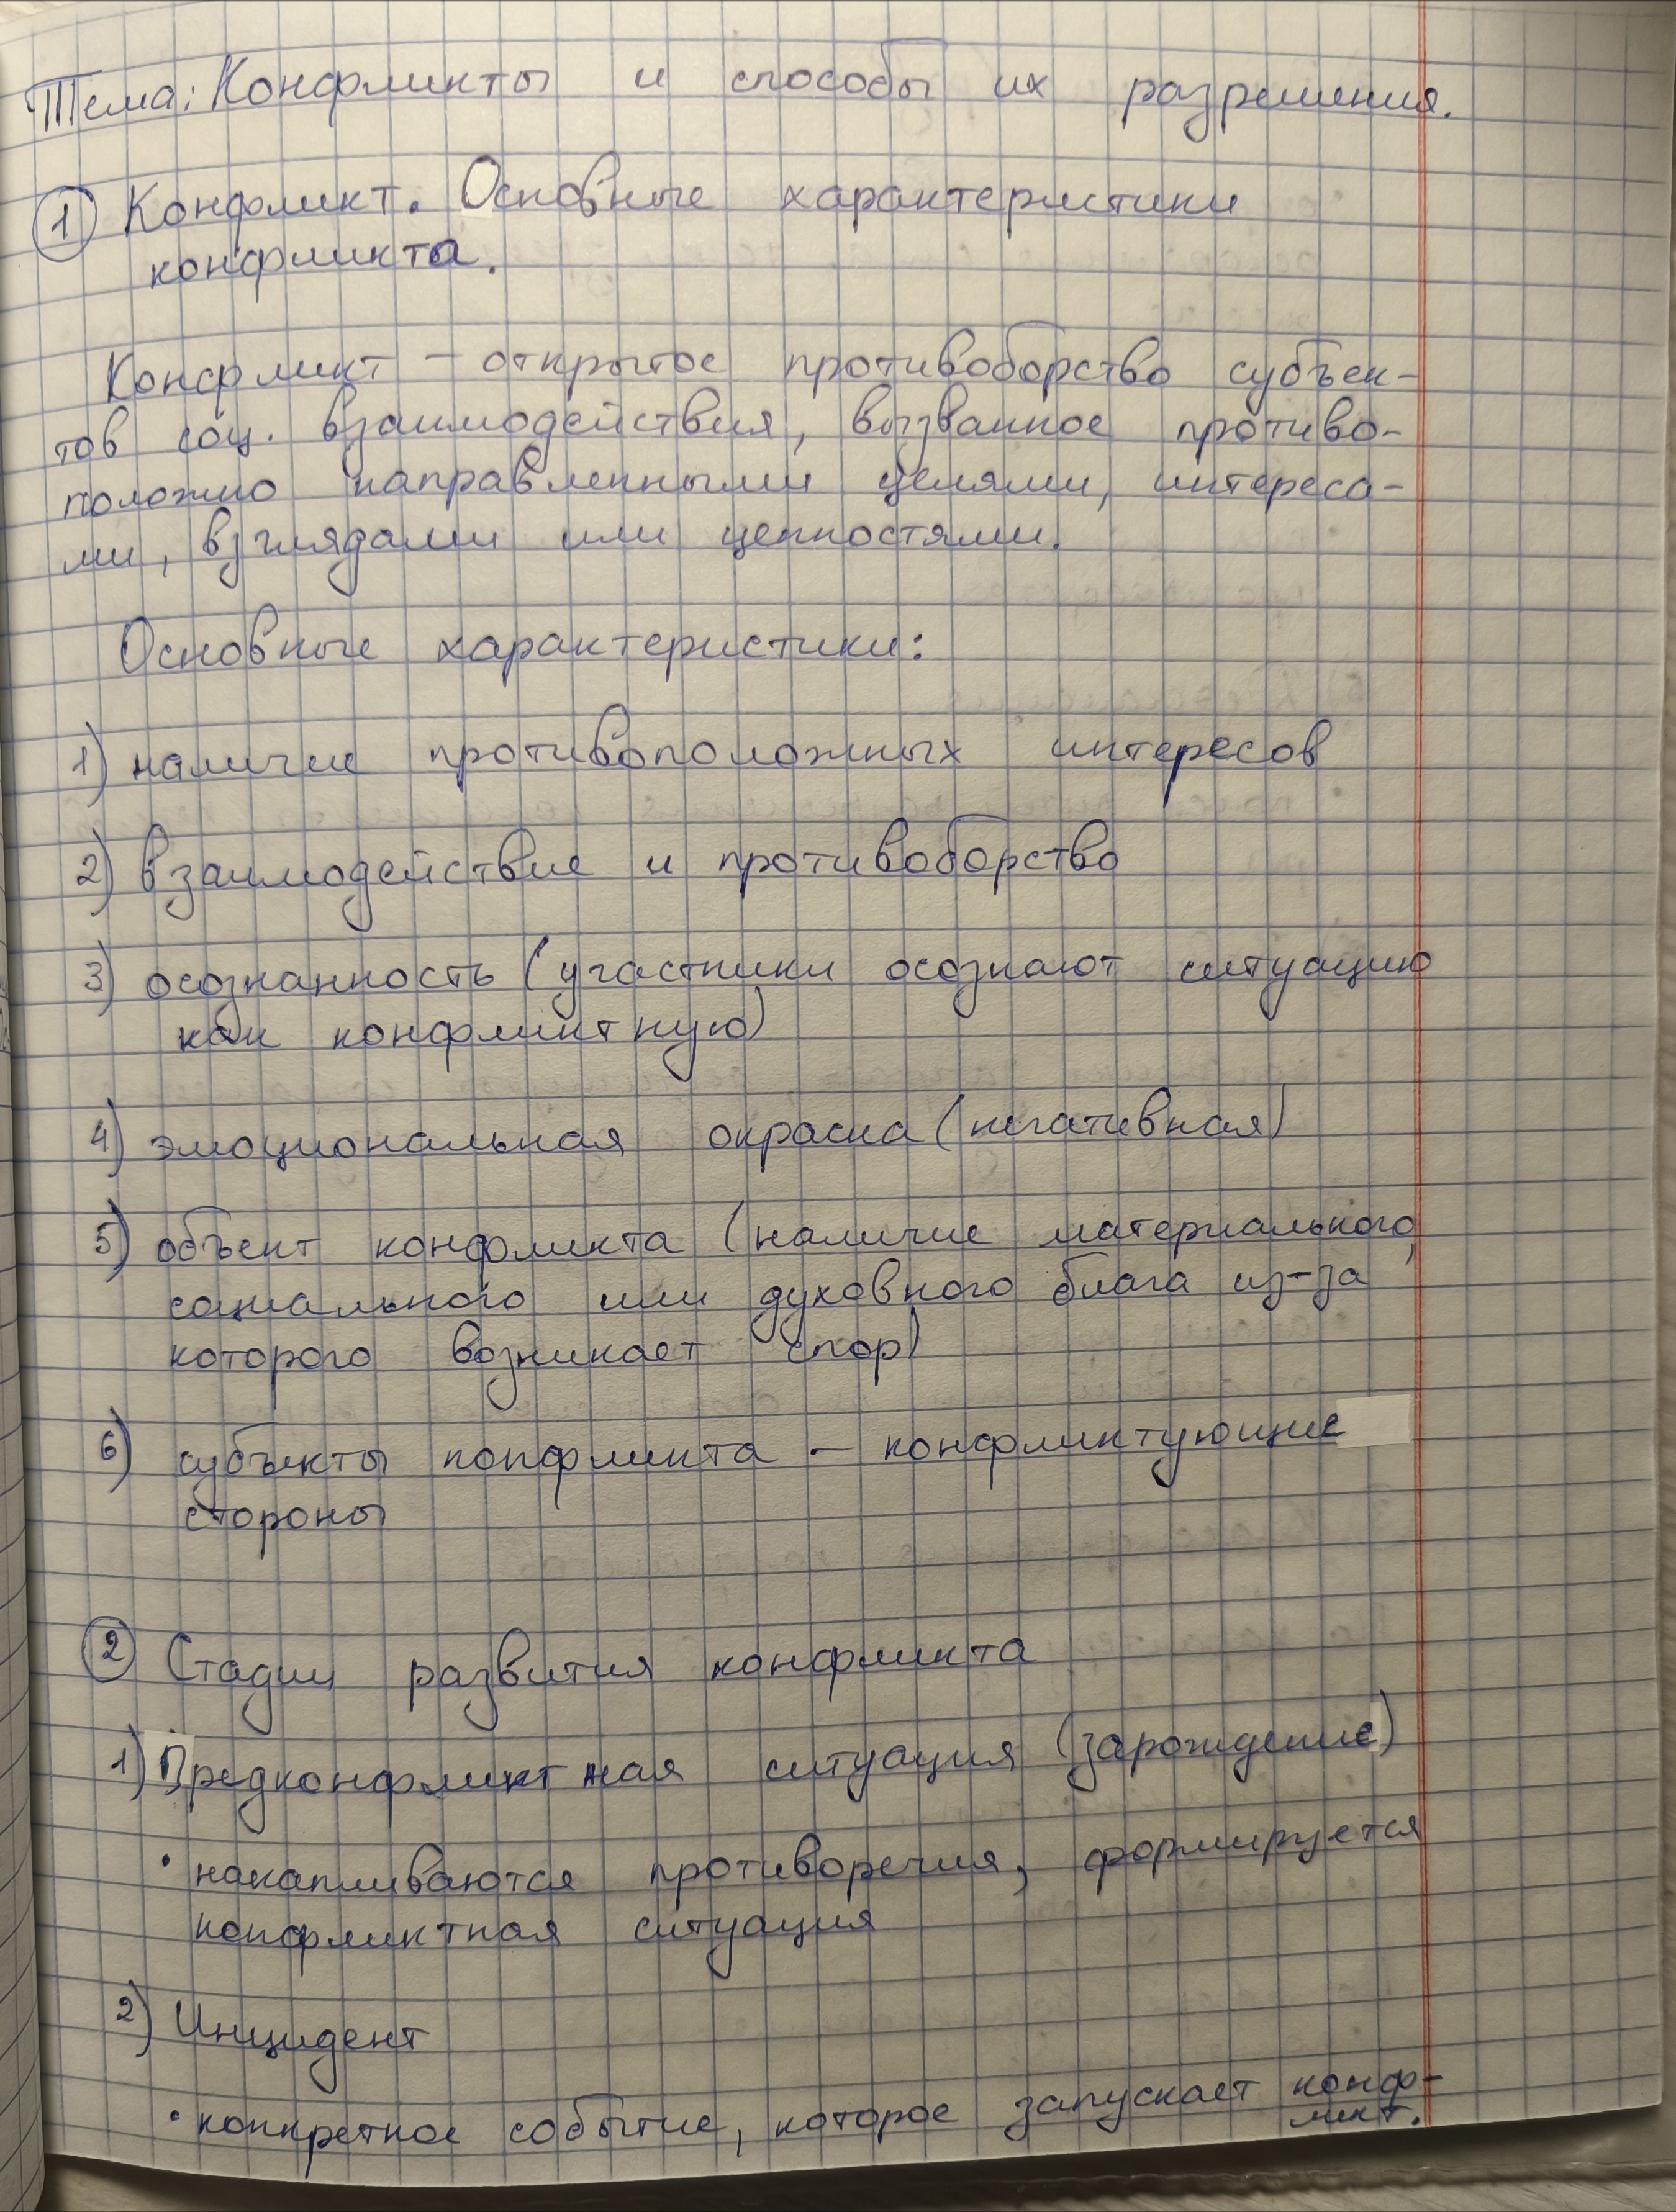 Тема: Конфликты и способы их разрешения.
1 Конфликт. Основные характеристики
конфликта.
Конфликт – открытое противоборство субъек-
тов соц. взаимодействия, вызванное противо-
положно направленными целями, интереса-
ми, взглядами или ценностями.
Основные характеристики:
1) наличие противоположных интересов
2) взаимодействие и противоборство
3) осознанность (участники осознают ситуацию
как конфликтную)
4) эмоциональная окраска (негативная)
5) объект конфликта (наличие материального,
социального или духовного блага из-за
которого возникает спор)
6) субъекты конфликта – конфликтующие
стороны
2 Стадии развития конфликта
1) Предконфликтная ситуация (зарождение)
• накапливаются противоречия, формируется
конфликтная ситуация
2) Инцидент
• конкретное событие, которое запускает конф-
ликт.